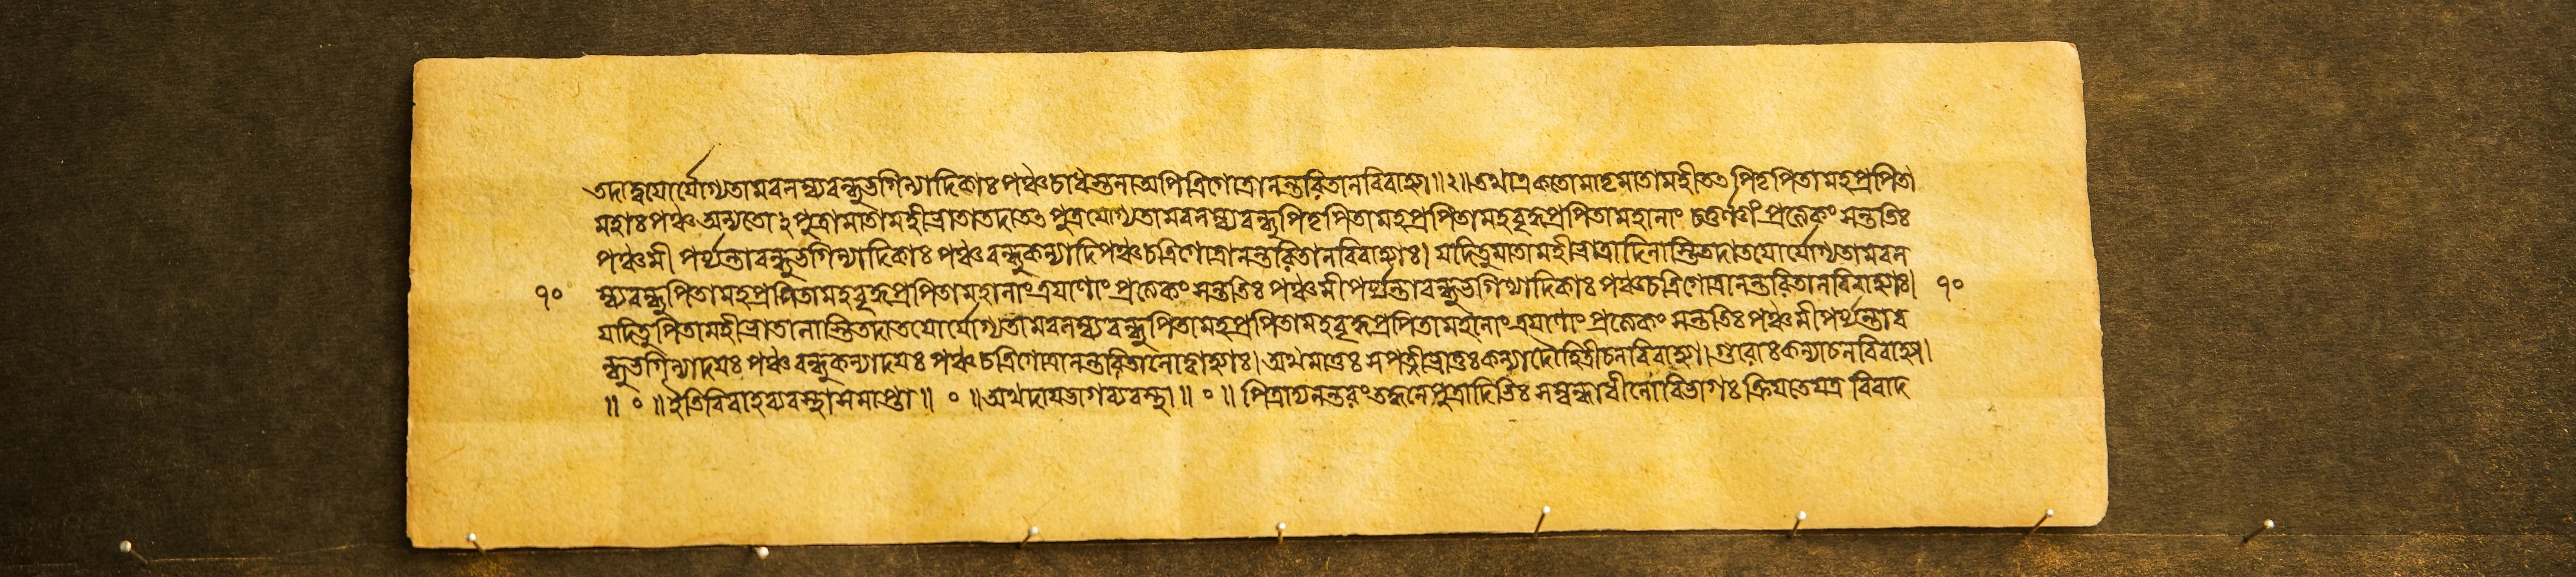 তদাদ্বযোর্যোগ্যতামবনম্ব্যবন্ধুভগিন্যাদিকাঃ পঞ্চচাধস্তনাঅপিত্রিগোত্রানন্তরিতানবিবাহ্যা॥২॥তথাত্রকতোমাতৃমাতামহীতও পিতৃপিতামহপ্রপিতা
মহাঃ পঞ্চ অন্যতো ২ পুত্রামাতামহীভ্রাতাতদাতও পুত্রযোগ্যতামবনম্ব্যবন্ধুপিতৃপিতামহপ্রপিতামহবৃদ্ধপ্রপিতামহানাং চতুর্ণাং প্রত্যেকং সন্ততিঃ
পঞ্চমী পর্য্যন্তাবন্ধুভগিন্যাদিকাঃ পঞ্চবন্ধুকন্যাদিপঞ্চচত্রিগোত্রানন্তরিতানবিবাহ্যাঃ। যদিতুমাতামহীভ্রাত্রাদিনাস্তিতদাতযোর্যোগ্যতামবন
১০ ম্ব্যবন্ধুপিতামহপ্রপিতামহবৃদ্ধপ্রপিতামহানাংত্রযাণাং প্রত্যেকং সন্ততিঃ পঞ্চমীপর্য্যন্তাবন্ধুভগিন্যাদিকাঃ পঞ্চচত্রিগোত্রানন্তরিতানবিবাহ্যাঃ। ১০
যদিতুপিতামহীভ্রাতানাস্তিতদাতযোর্যোগ্যতামবনম্ব্যবন্ধুপিতামহপ্রপিতামহবৃদ্ধপ্রপিতামহানাংত্রযাণাং প্রত্যেকং সন্ততিঃ পঞ্চমীপর্য্যন্তাব
ন্ধুভগিন্যাদযঃ পঞ্চবন্ধুকন্যাদযঃ পঞ্চ চত্রিগোত্রানন্তরিতানোদ্বাহ্যাঃ। অথমাতুঃ সপত্নীভ্রাতুঃকন্যাদৌহিত্রীচনবিবাহ্যা। গুরোঃকন্যাচনবিবাহ্যা।
॥ ০ ॥ইতিবিবাহব্যবস্থাসমাপ্তা॥ ০ ॥অথদাযভাগব্যবস্থা॥ ০ ॥ পিত্রাদ্যনন্তরংতদ্ধনেপুত্রাদিভিঃ সম্বন্ধাধীনোবিভাগঃ ক্রিযতেযত্র বিবাদ